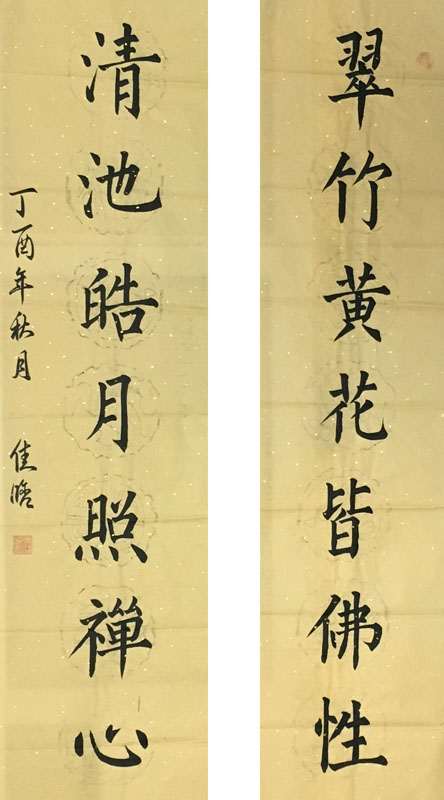 翠竹黄花皆佛性
清池皓月照禪心
丁酉年秋月 佳晗